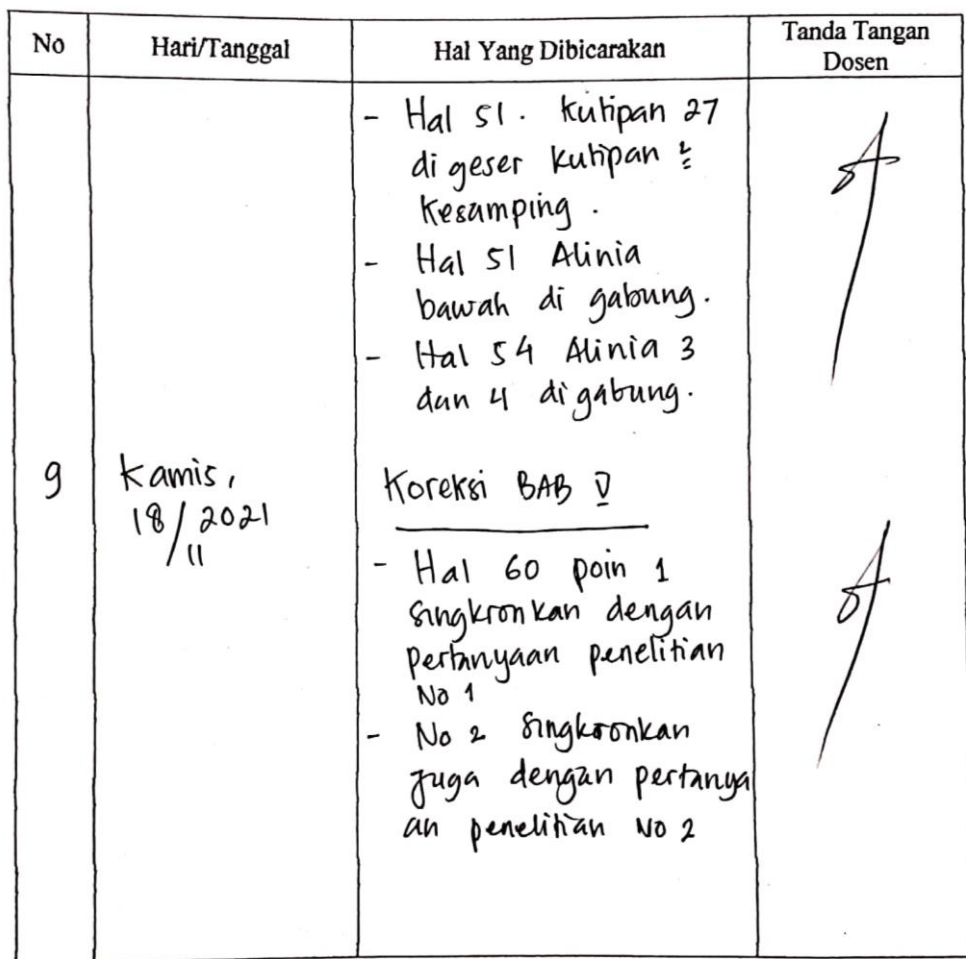 No
Hari/Tanggal
Hal Yang Dibicarakan
Tanda Tangan
Dosen
- Hal 51. Kutipan 27
di geser kutipan
Kesamping.
- Hal 51 Alinia
bawah di gabung.
- Hal 54 Alinia 3
dan 4 di gabung.
9
Kamis,
18/11 2021
Koreksi BAB V
- Hal 60 poin 1
singkronkan dengan
pertanyaan penelitian
No 1
- No 2 singkronkan
juga dengan pertanya
an penelitian No 2